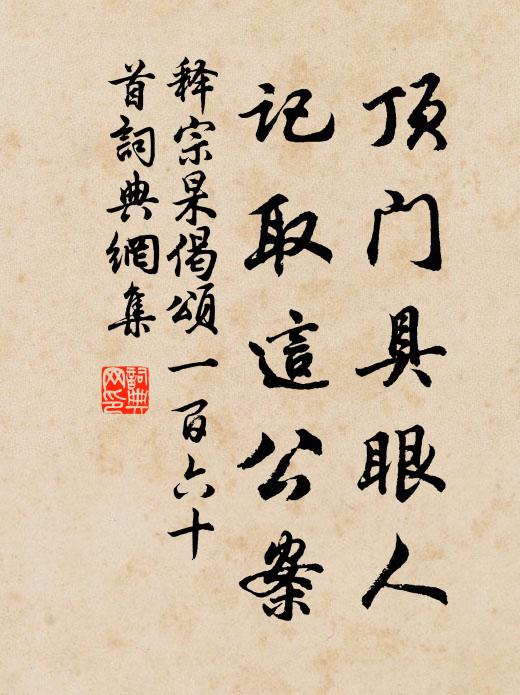 顶门具眼人
记取這公案
释宗杲偈頌一百六十
首詞典網集
詞典网印